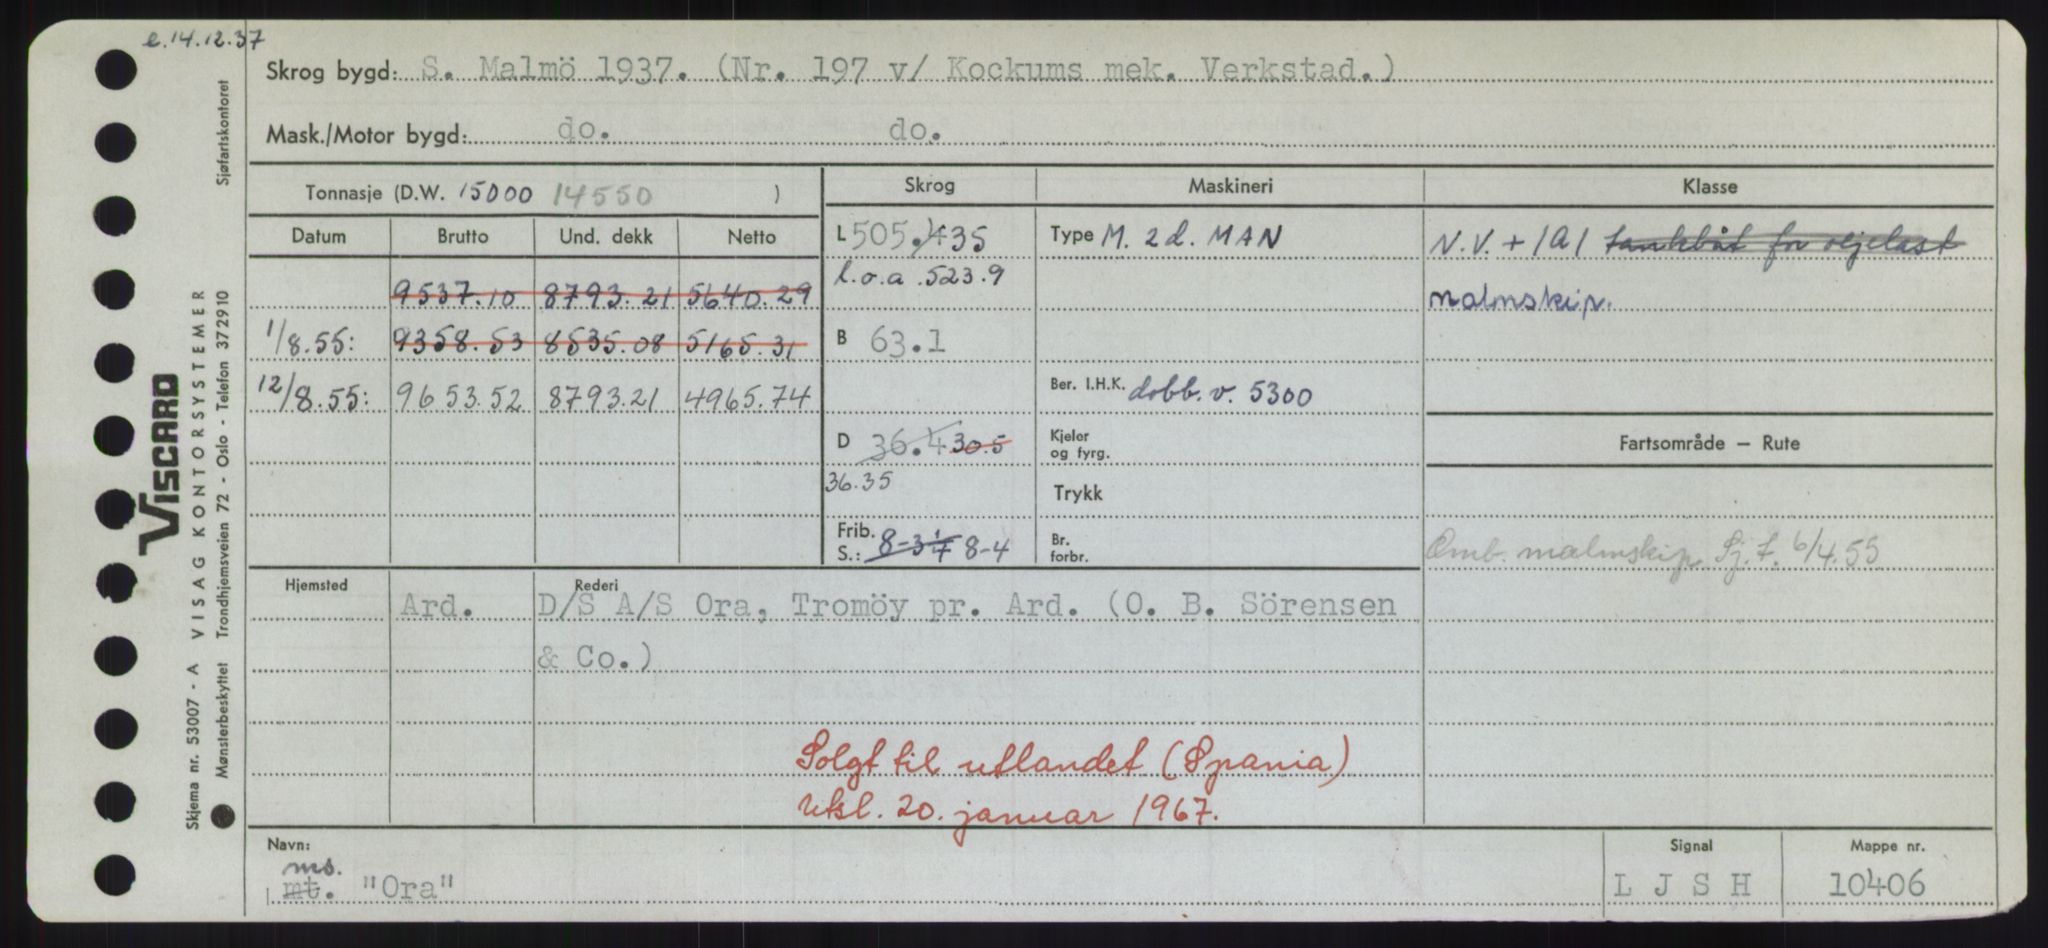 e.14.12.37
Skrog bygd: S. Malmö 1937. (Nr. 197 v/ Kockums mek. Verkstad.)
Mask./Motor bygd: do. do.
Tonnasje (D.W. 15000 14550 )
Skrog Maskineri Klasse
Datum Brutto Und. dekk Netto
L 505.435
Type M. 2 d. MAN
N.V. + 1A1 tankbåt for oljelast
l.o.a. 523.9
9537.10 8793.21 5640.29
malmskip.
1/8.55: 9358.53 8535.08 5165.31
B 63.1
12/8.55: 9653.52 8793.21 4965.74
Ber. I.H.K. dobb. v. 5300
D 36.4 30.5
Kjeler
og fyrg.
Fartsområde — Rute
36.35
Trykk
Frib.
S.: 8-3 1/4 8-4
Br.
forbr.
Omb. malmskip Sj.f. 6/4.55
Hjemsted Rederi
Ard. D/S A/S Ora, Tromöy pr. Ard. (O. B. Sörensen
& Co.)
Solgt til utlandet (Spania)
Utsl. 20. januar 1967.
Navn: Signal Mappe nr.
ms.
mt. "Ora" L J S H 10406
VISCARD
Skjema nr. 53007 - A VISAG KONTORSYSTEMER
Mønsterbeskyttet Trondhjemsveien 72 - Oslo - Telefon 372910 Sjøfartskontoret